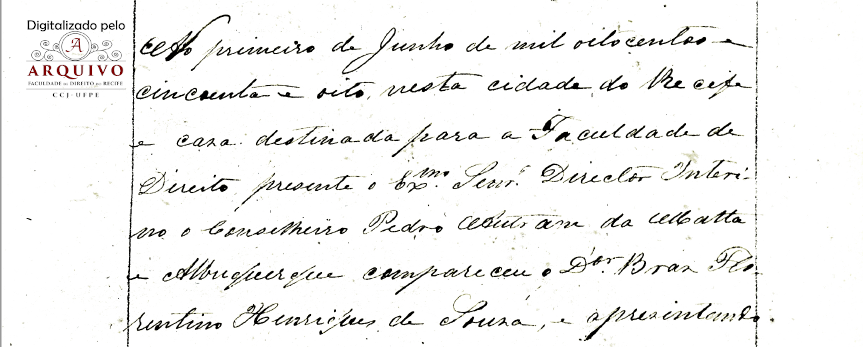 Digitalizado pelo
A
ARQUIVO
FACULDADE DE DIREITO DO RECIFE
CCJ-UFPE
Ao primeiro de Junho de mil oitocentos e
cincoenta e oito, nesta cidade do Recife
e casa destinada para a Faculdade de
Direito presente o Exmo. Senr. Director Interi-
no o Conselheiro Pedro Autran da Matta
e Albuquerque compareceu o Dor. Braz Flo-
rentino Henriques de Souza, e apresentando